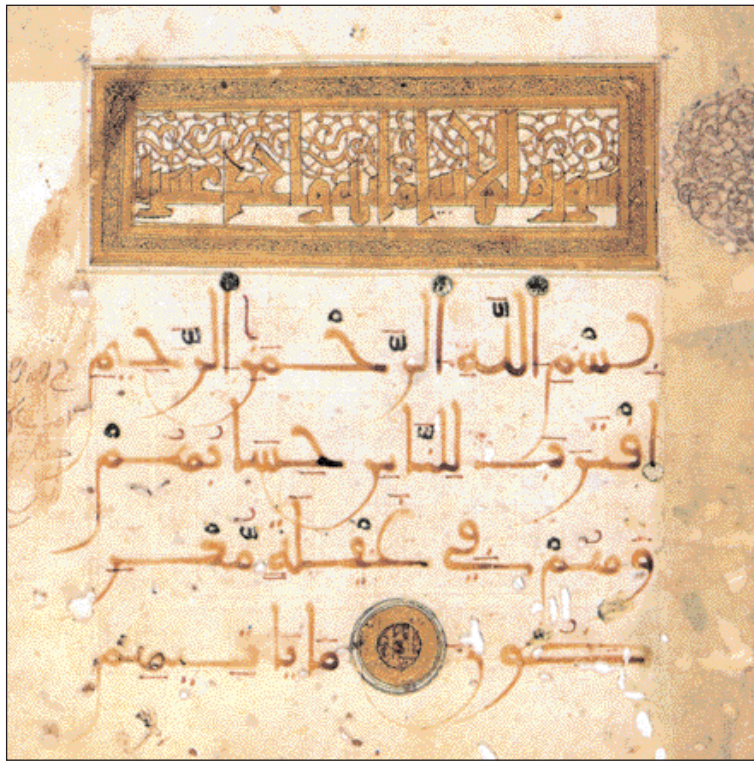 سورة الانبيا
بِسْمِ اللَّهِ الرَّحْمَنِ الرَّحِيمِ
اقْتَرَبَ لِلنَّاسِ حِسَابُهُمْ
وَهُمْ فِي غَفْلَةٍ مُّعْرِ
ضُونَ مَا يَاتِيهِم